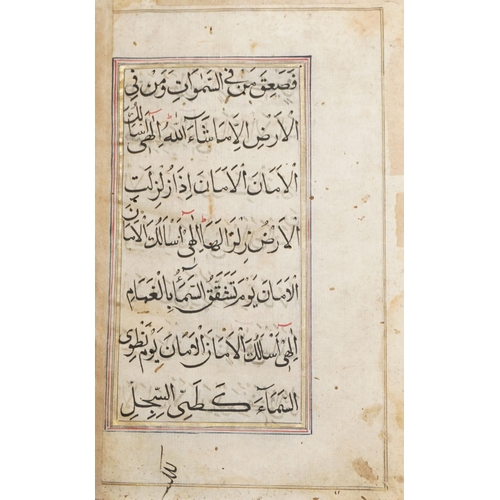 فَصَعِقَ مَنْ فِي السَّمٰوَاتِ وَمَنْ فِي
الْاَرْضِ اِلَّا مَا شَآءَ اللّٰهُ اِلٰهِی اَسْاَلُكَ
الْاَمَانَ الْاَمَانَ اِذَا زُلْزِلَتِ
الْاَرْضُ زِلْزَالَهَا اِلٰهِی اَسْاَلُكَ الْاَمَانَ
الْاَمَانَ يَوْمَ تَشَقَّقُ السَّمَآءُ بِالْغَمَامِ
اِلٰهِی اَسْاَلُكَ الْاَمَانَ الْاَمَانَ يَوْمَ نَطْوِی
السَّمَآءَ كَطَیِّ السِّجِلِّ